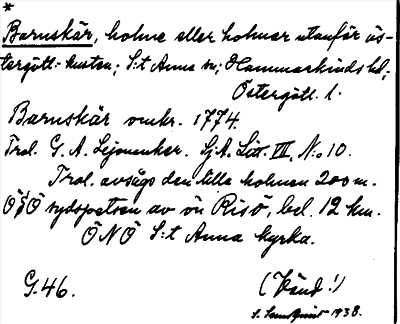 *
Barnskär, holme eller holmar utanför ös-
tergött.-kusten; S:t Anna sn; Hammarkinds hd;
Östergötl. l.
Barnskär omkr. 1774.
Trol. G. A. Lejonanker. Sj.A. Litt. III, N:o 10.
Trol. avsågs den lilla holmen 200 m.
ÖSÖ sydspetsen av ön Risö, bel. 12 km.
ÖNÖ S:t Anna kyrka.
G.46.
(Vänd!)
1938.